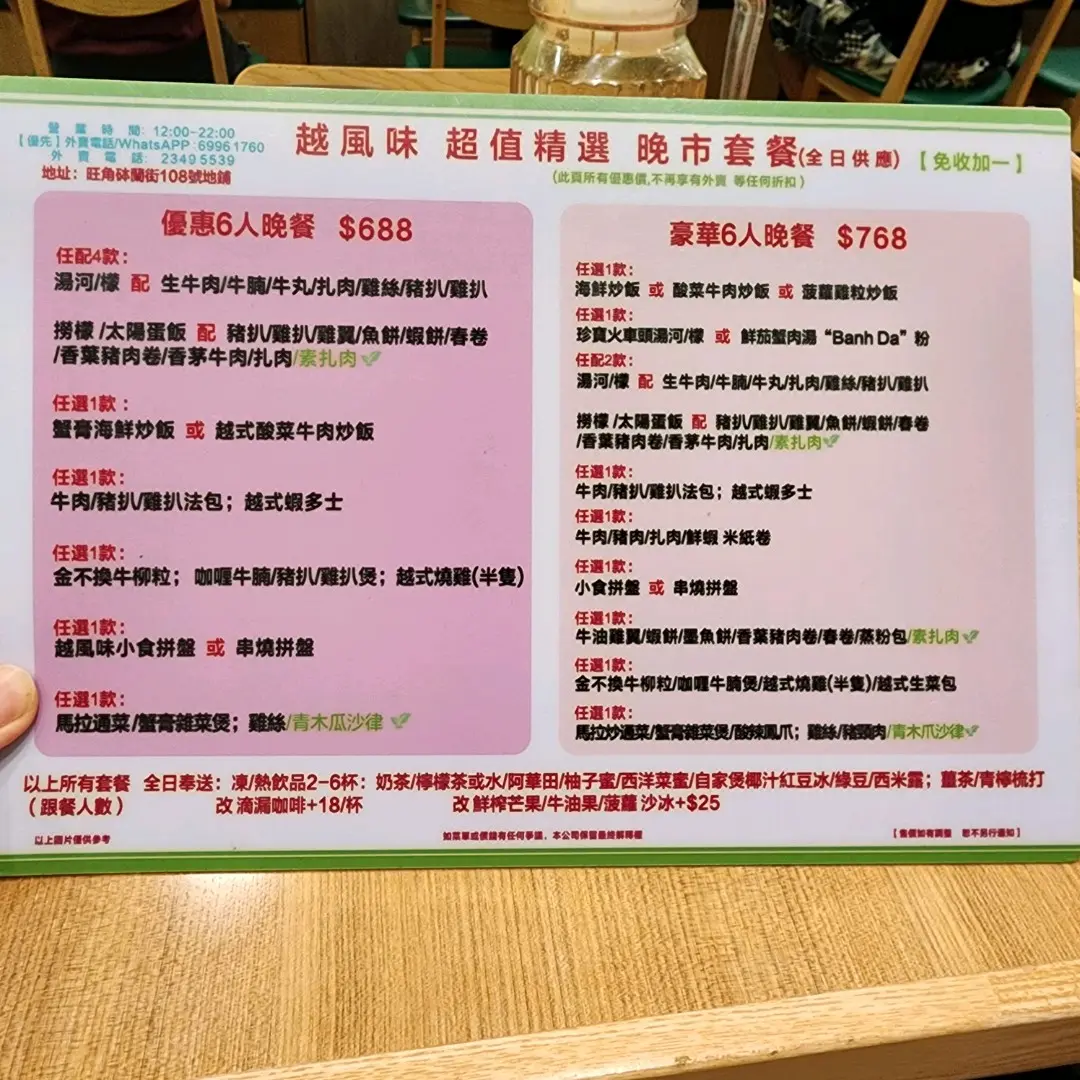 營業時間: 12:00-22:00
【優先】外賣電話/WhatsAPP:6996 1760
外賣電話: 2349 5539
地址: 旺角砵蘭街108號地鋪
越風味 超值精選 晚市套餐(全日供應)【免收加一】
(此頁所有優惠價,不再享有外賣 等任何折扣)
優惠6人晚餐 $688
任配4款:
湯河/檬 配 生牛肉/牛腩/牛丸/扎肉/雞絲/豬扒/雞扒
撈檬/太陽蛋飯 配 豬扒/雞扒/雞翼/魚餅/蝦餅/春卷
/香葉豬肉卷/香茅牛肉/扎肉/素扎肉
任選1款:
蟹膏海鮮炒飯 或 越式酸菜牛肉炒飯
任選1款:
牛肉/豬扒/雞扒法包; 越式蝦多士
任選1款:
金不換牛柳粒; 咖喱牛腩/豬扒/雞扒煲; 越式燒雞(半隻)
任選1款:
越風味小食拼盤 或 串燒拼盤
任選1款:
馬拉通菜/蟹膏雜菜煲; 雞絲/青木瓜沙律
豪華6人晚餐 $768
任選1款:
海鮮炒飯 或 酸菜牛肉炒飯 或 菠蘿雞粒炒飯
任選1款:
珍寶火車頭湯河/檬 或 鮮茄蟹肉湯“Banh Da”粉
任配2款:
湯河/檬 配 生牛肉/牛腩/牛丸/扎肉/雞絲/豬扒/雞扒
撈檬/太陽蛋飯 配 豬扒/雞扒/雞翼/魚餅/蝦餅/春卷
/香葉豬肉卷/香茅牛肉/扎肉/素扎肉
任選1款:
牛肉/豬扒/雞扒法包; 越式蝦多士
任選1款:
牛肉/豬肉/扎肉/鮮蝦 米紙卷
任選1款:
小食拼盤 或 串燒拼盤
任選1款:
牛油雞翼/蝦餅/墨魚餅/香葉豬肉卷/春卷/蒸粉包/素扎肉
任選1款:
金不換牛柳粒/咖喱牛腩煲/越式燒雞(半隻)/越式生菜包
任選1款:
馬拉炒通菜/蟹膏雜菜煲/酸辣鳳爪; 雞絲/豬頸肉/青木瓜沙律
以上所有套餐 全日奉送: 凍/熱飲品2-6杯: 奶茶/檸檬茶或水/阿華田/柚子蜜/西洋菜蜜/自家煲椰汁紅豆冰/綠豆/西米露; 薑茶/青檸梳打
(跟餐人數) 改 滴漏咖啡+18/杯 改 鮮榨芒果/牛油果/菠蘿 沙冰+$25
以上圖片僅供參考
如菜單或價錢有任何爭議,本公司保留最終解釋權
【售價如有調整 恕不另行通知】